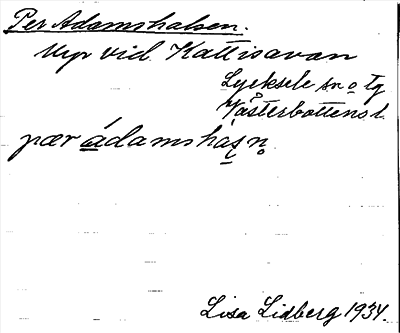 Per Adamshalsen.
Udp vid Kattisavan
Lycksele sn o tg
Västerbottens l.
pær ádamsha̭s̭n̥
Lisa Lidberg 1934.